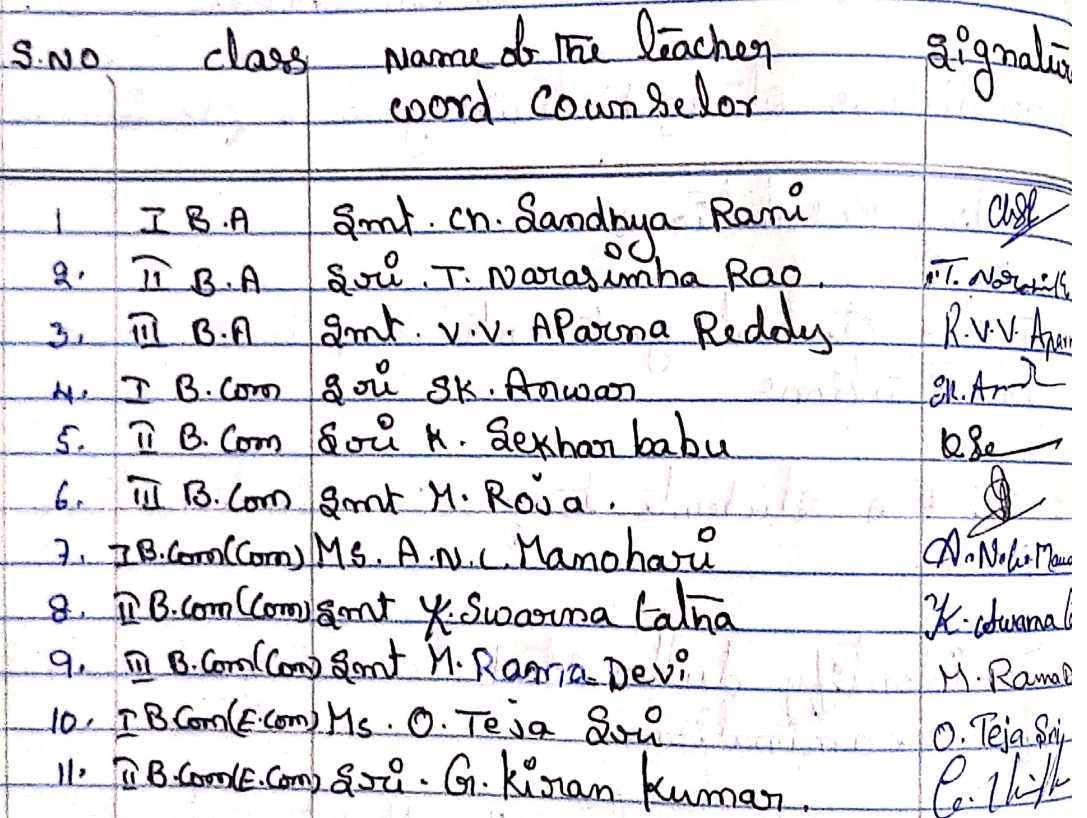 S.NO class Name of the teacher Signature
coord Counselor
1 I B.A Smt. Ch. Sandhya Rani
2. II B.A Sri. T. Narasimha Rao.
3. III B.A Smt. V.V. APArna Reddy R.V.V. Apar
4. I B.Com Sri SK. Anwar
5. II B.Com Sri K. Sekhar babu
6. III B.Com Smt M. Roja.
7. I B.Com(Com) Ms. A.N.L. Manohari
8. II B.com(Com) Smt K. Swarna Latha
9. III B.Com(Com) Smt M. Rama Devi M. Rama
10. I B.Com(E.com) Ms. O. Teja Sri O. Teja Sri
11. II B.Com(E.Com) Sri. G. Kiran Kumar.